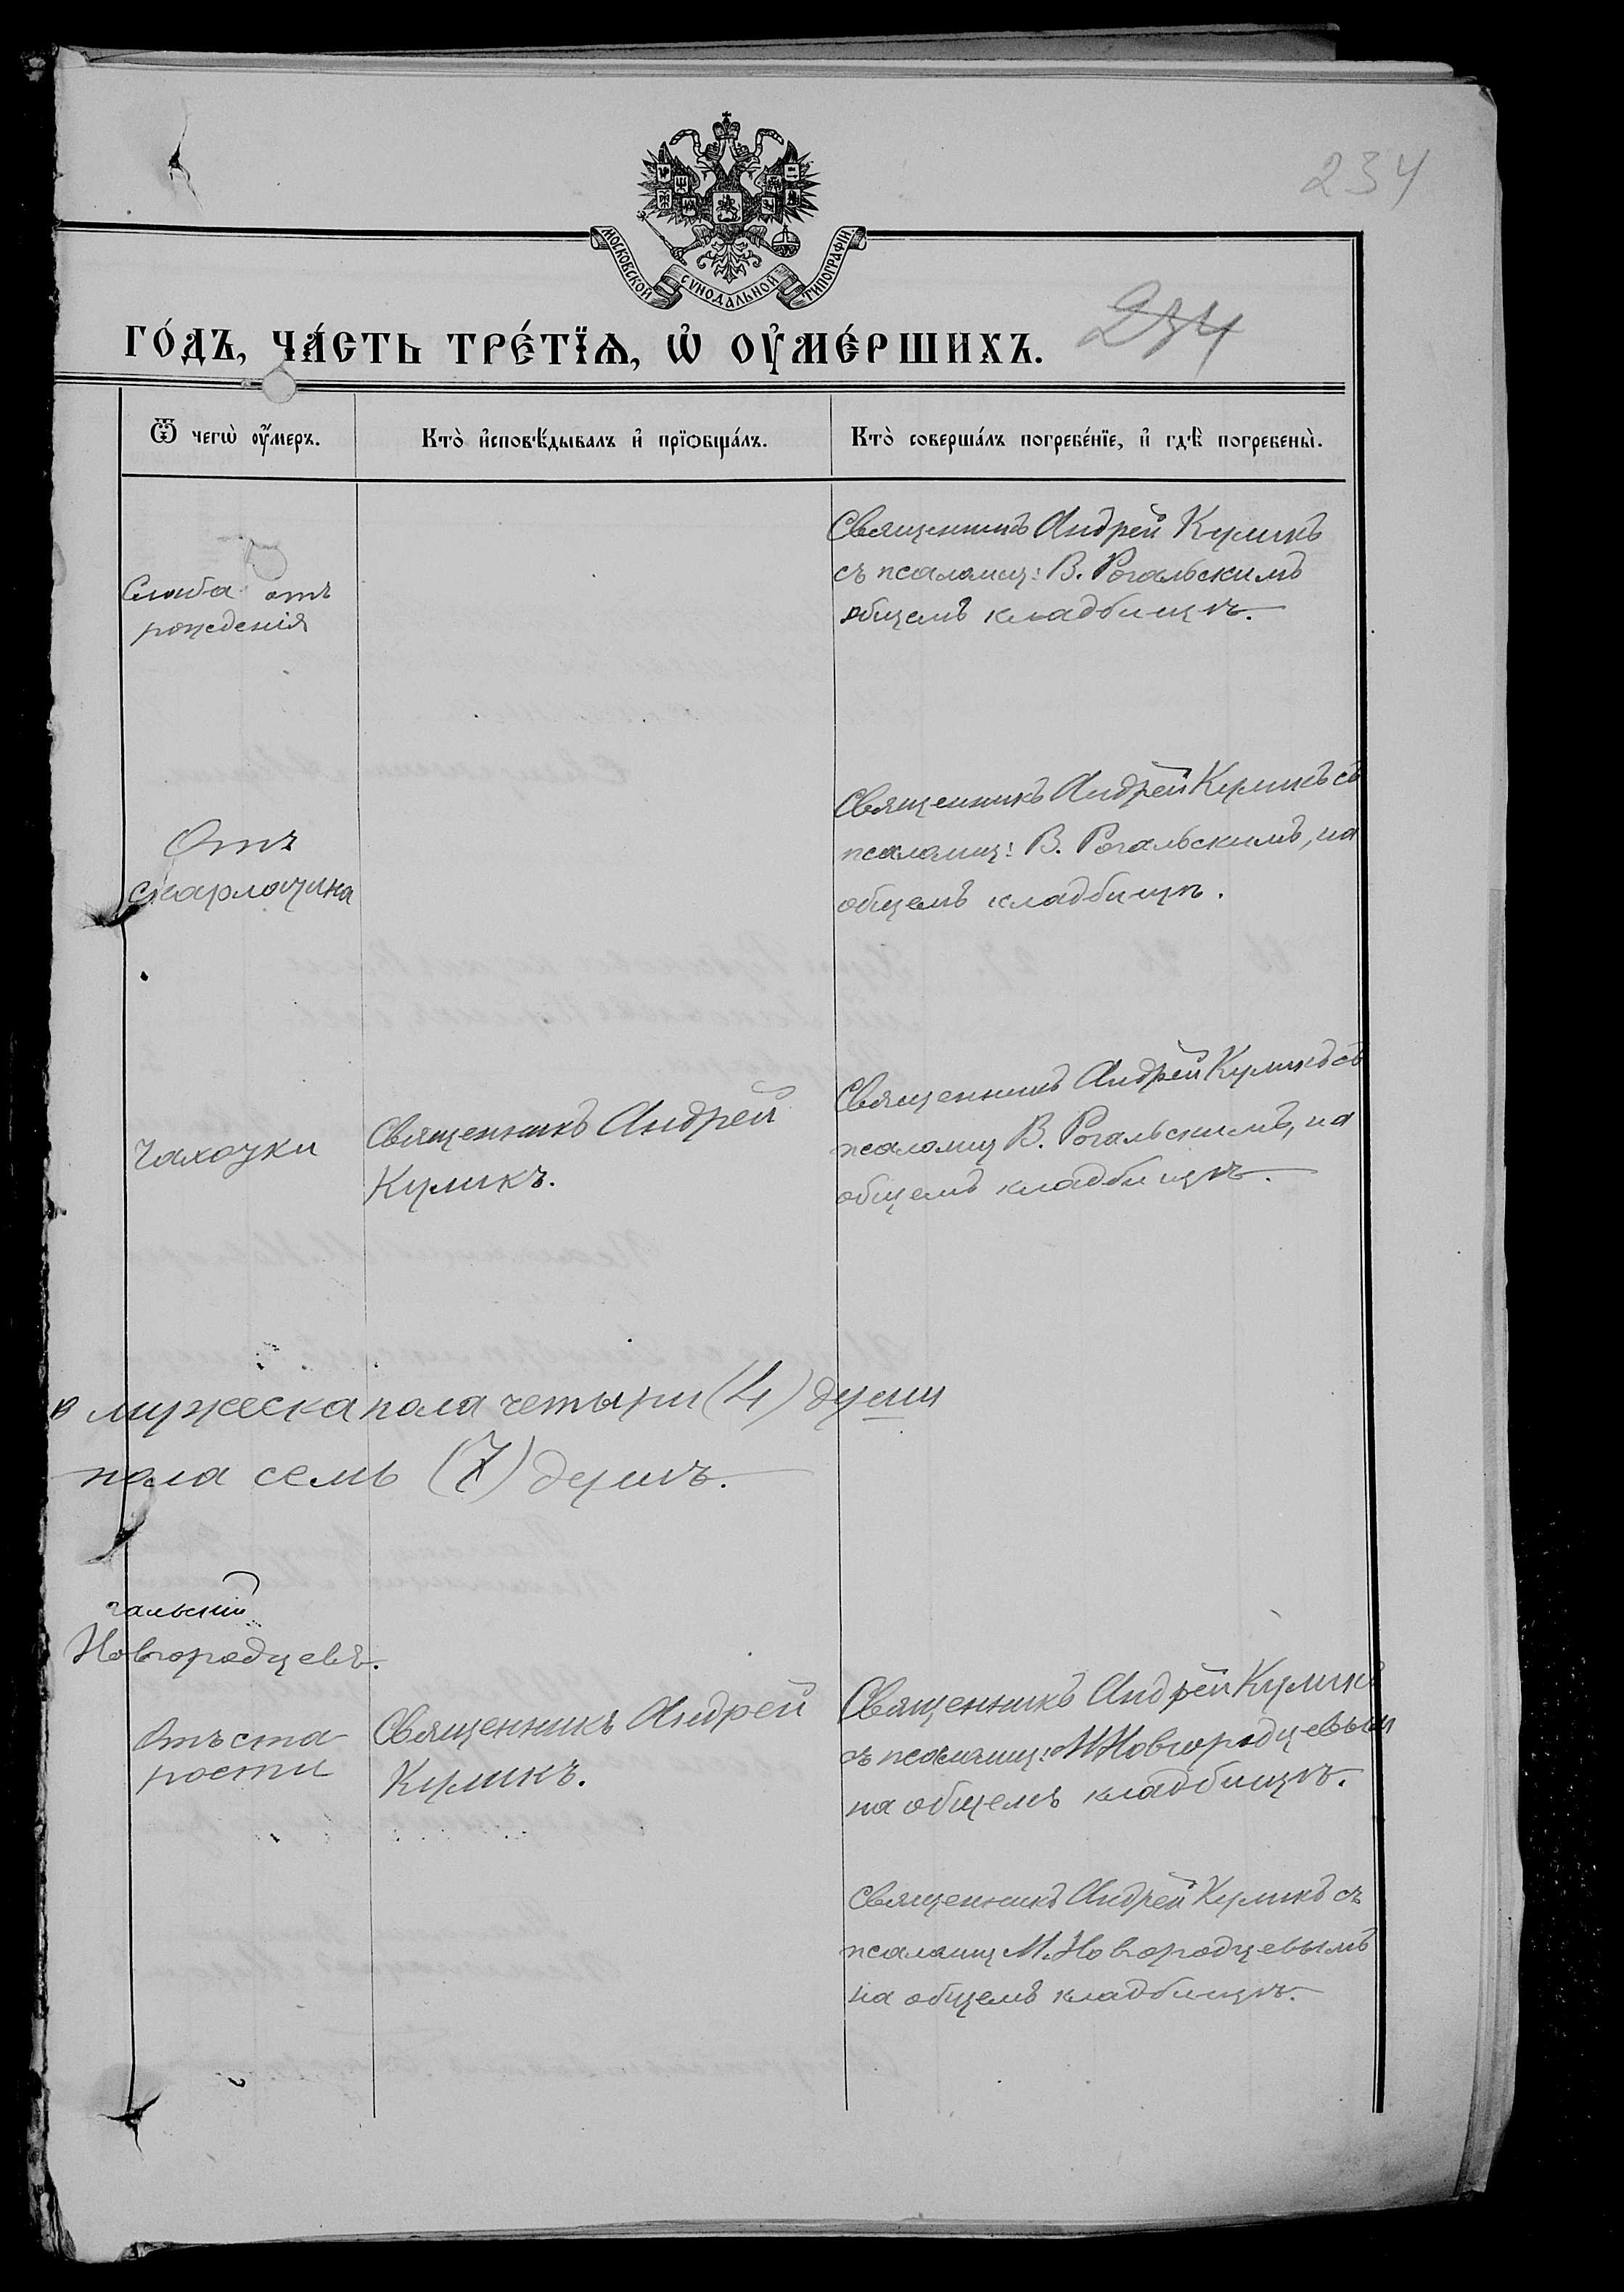 234
МОСКОВСКОЙ СѴНОДАЛЬНОЙ ТИПОГРАФІИ.
ГО́ДЪ, ЧА́СТЬ ТРЕ́ТЇѦ, Ѡ҆ ОУ҆МЕ́РШИХЪ.
234
Ѿ чегѡ̀ оу҆́меръ.
Кто̀ и҆сповѣ́дывалъ и҆ прїѻбща́лъ.
Кто̀ соверша́лъ погребе́нїе, и҆ гдѣ̀ погребены̀.
Слаба отъ
рожденія
Священникъ Андрей Куликъ
съ псаломщ: В. Рогальскимъ
общемъ кладбищѣ.
Отъ
скарлатина
Священникъ Андрей Куликъ съ
псаломщ: В. Рогальскимъ, на
общемъ кладбищѣ.
Чахотки
Священникъ Андрей
Куликъ.
Священникъ Андрей Куликъ съ
псаломщ В. Рогальскимъ, на
общемъ кладбищѣ.
о мужеска пола четыри (4) души
пола семь (7) душъ.
гальскій
Новгородцевъ.
Отъ ста
рости
Священникъ Андрей
Куликъ.
Священникъ Андрей Куликъ
съ псаломщ: М Новгородцевым
на общемъ кладбищѣ.
Священникъ Андрей Куликъ съ
псаломщ М. Новгородцевымъ
на общемъ кладбищѣ.